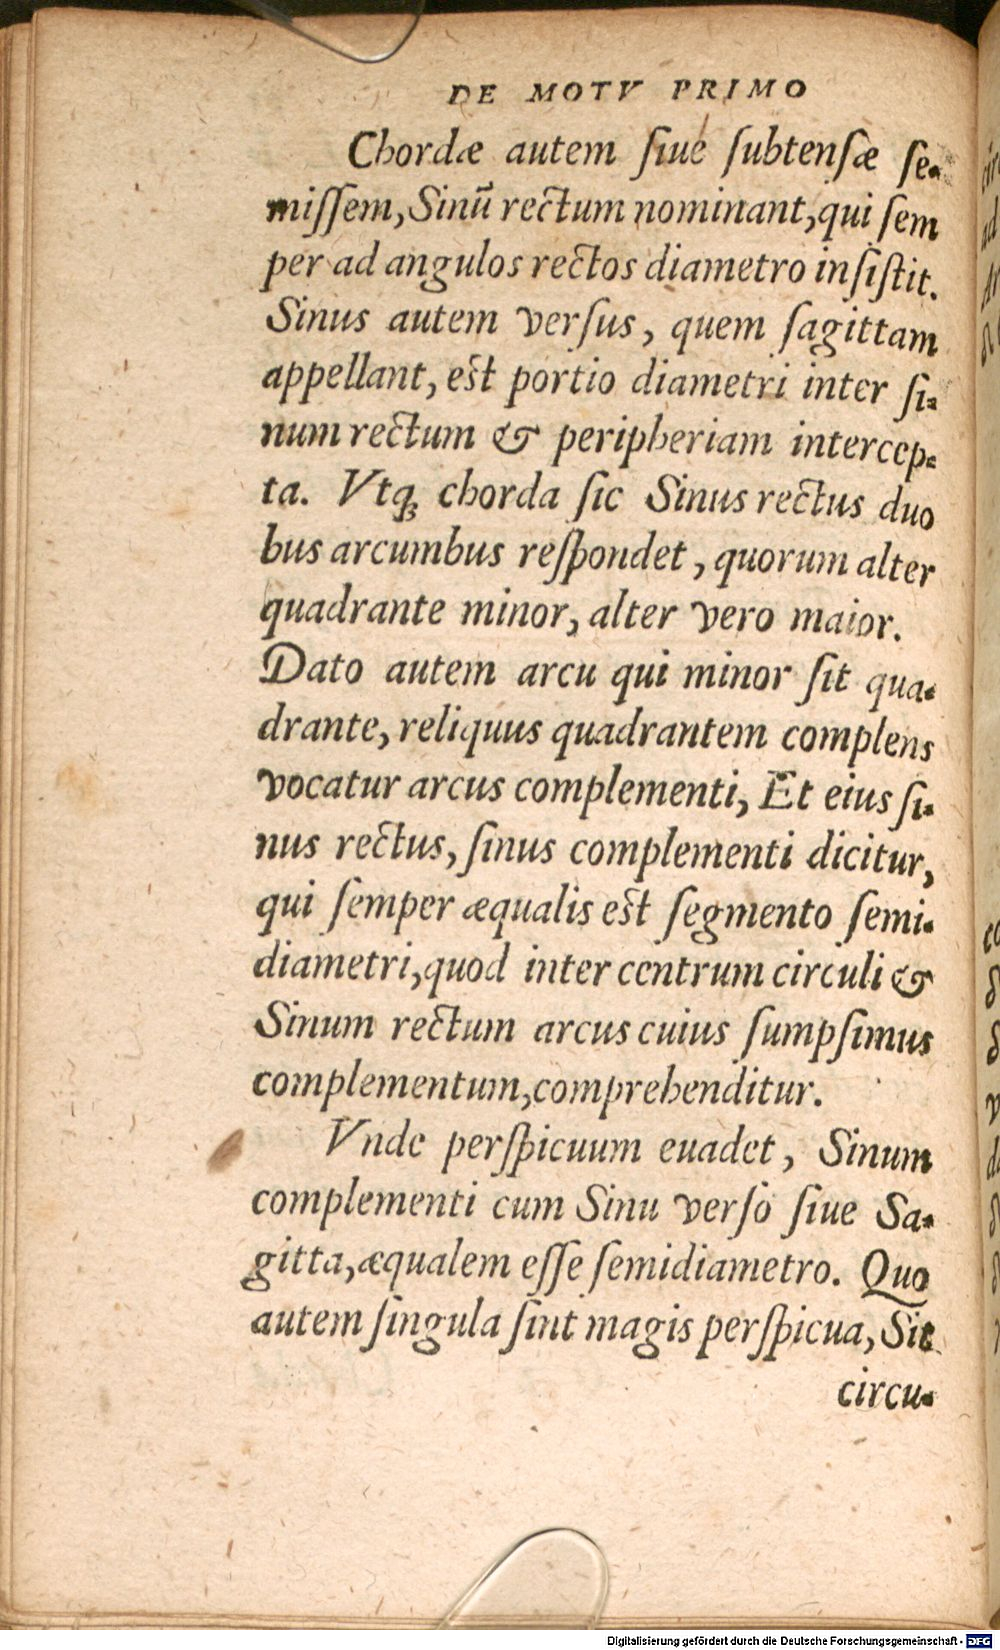 DE MOTV PRIMO
Chordæ autem ſiue ſubtenſæ ſe-
miſſem, Sinū rectum nominant, qui ſem
per ad angulos rectos diametro inſiſtit.
Sinus autem verſus, quem ſagittam
appellant, eſt portio diametri inter ſi-
num rectum & peripheriam intercep-
ta. Vtq́ꝫ chorda ſic Sinus rectus duo
bus arcumbus reſpondet, quorum alter
quadrante minor, alter vero maior.
Dato autem arcu qui minor ſit qua-
drante, reliquus quadrantem complens
vocatur arcus complementi, Et eius ſi-
nus rectus, ſinus complementi dicitur,
qui ſemper æqualis eſt ſegmento ſemi-
diametri, quod inter centrum circuli &
Sinum rectum arcus cuius ſumpſimus
complementum, comprehenditur.
Vnde perſpicuum euadet, Sinum
complementi cum Sinu verſo ſiue Sa-
gitta, æqualem eſſe ſemidiametro. Quo
autem ſingula ſint magis perſpicua, Sit
circu-
Digitalisierung gefördert durch die Deutsche Forschungsgemeinschaft - DFG